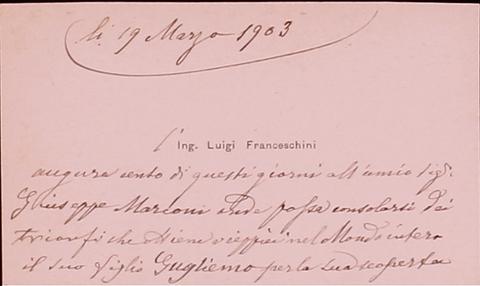 li 19 Marzo 1903
l'Ing. Luigi Franceschini
augura cento di questi giorni all'amico Sigr.
Giuseppe Marconi onde possa consolarsi dei
trionfi che ottiene vieppiù nel Mondo intero
il suo figlio Gugliemo per la sua scoperta